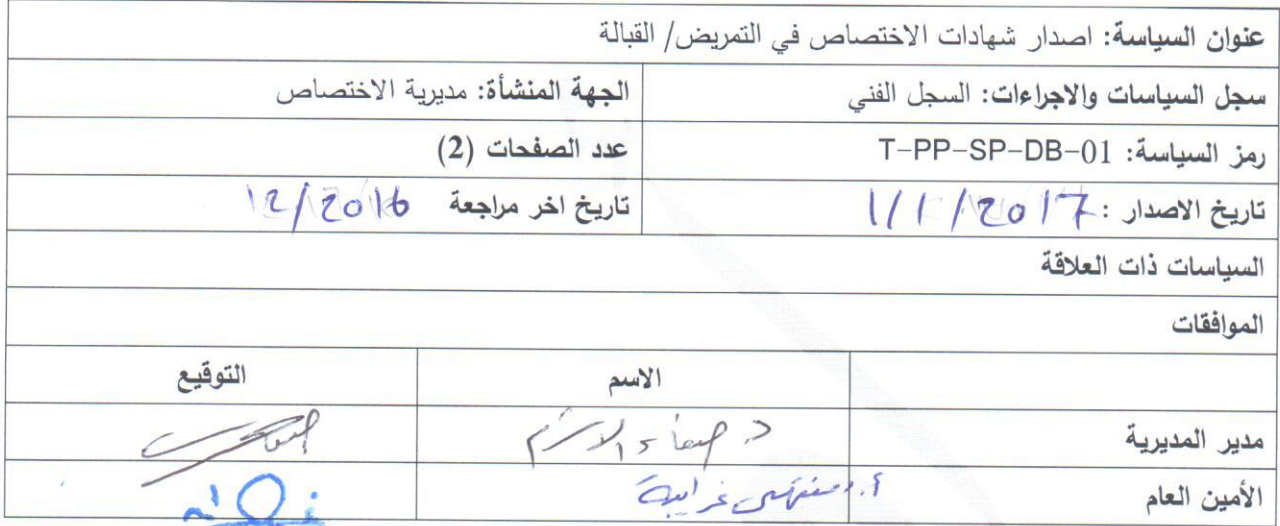 عنوان السياسة: اصدار شهادات الاختصاص في التمريض/ القبالة
سجل السياسات والاجراءات: السجل الفني الجهة المنشأة: مديرية الاختصاص
رمز السياسة: T-PP-SP-DB-01 عدد الصفحات (2)
تاريخ الاصدار : 1/1/2017 تاريخ اخر مراجعة 12/2016
السياسات ذات العلاقة
الموافقات
الاسم التوقيع
مدير المديرية د.
الأمين العام أ.د منتهى غرايبة